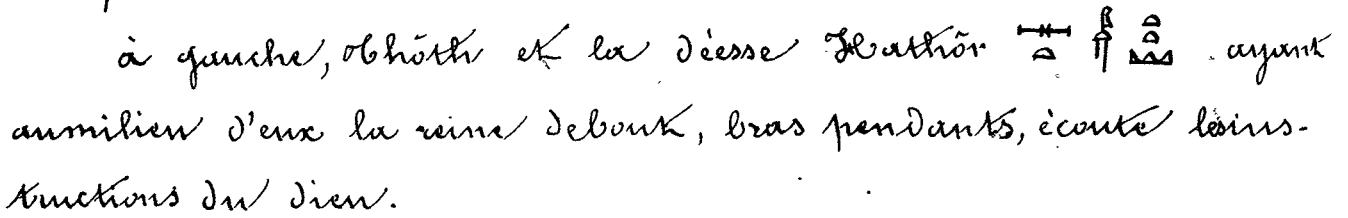 à gauche, Thôth et la déesse Hathôr ayant
aumilieu d'eux la reine debout, bras pendants, écoute lesins-
tructions du dieu.